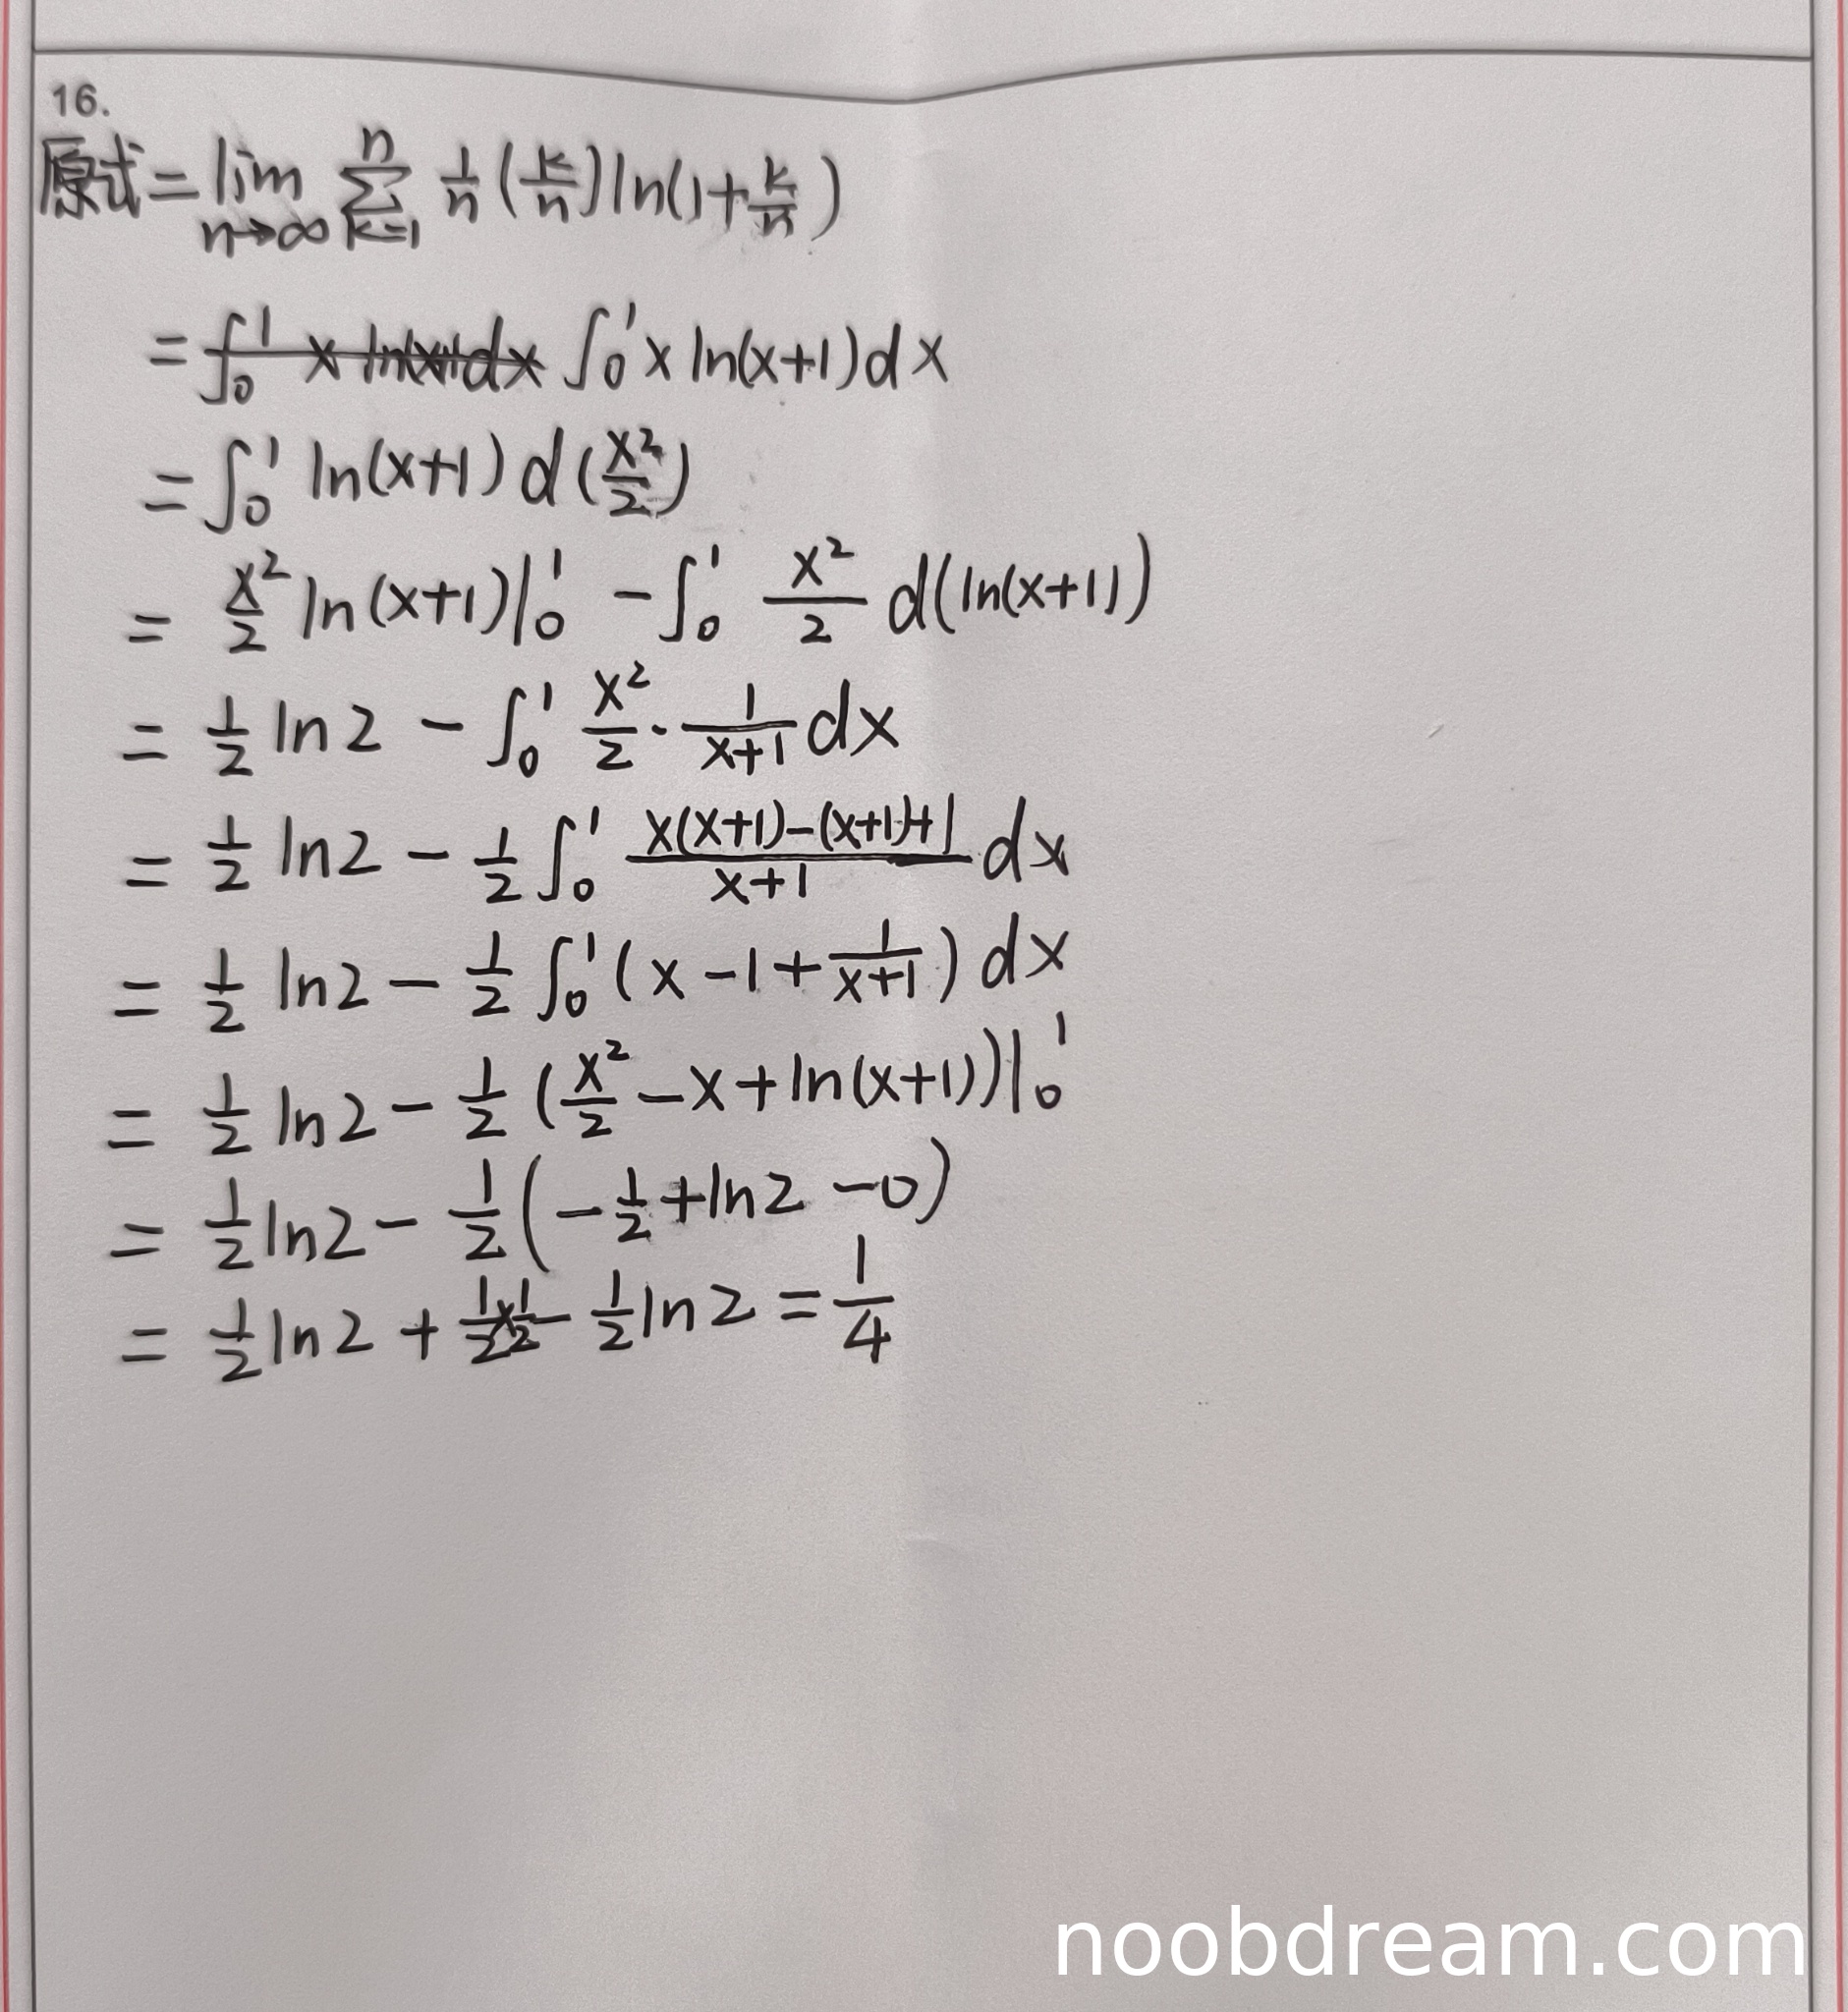 16.
原式 = lim_{n→∞} ∑_{k=1}^{n} 1/n (k/n) ln(1+k/n)
= ∫₀¹ x ln(x+1)dx
= ∫₀¹ ln(x+1) d(x²/2)
= x²/2 ln(x+1)|₀¹ - ∫₀¹ x²/2 d(ln(x+1))
= 1/2 ln2 - ∫₀¹ x²/2 · 1/(x+1) dx
= 1/2 ln2 - 1/2 ∫₀¹ (x(x+1)-(x+1)+1)/(x+1) dx
= 1/2 ln2 - 1/2 ∫₀¹ (x-1+1/(x+1)) dx
= 1/2 ln2 - 1/2 (x²/2 - x + ln(x+1))|₀¹
= 1/2 ln2 - 1/2 (-1/2 + ln2 - 0)
= 1/2 ln2 + 1/2×1/2 - 1/2 ln2 = 1/4
noobdream.com